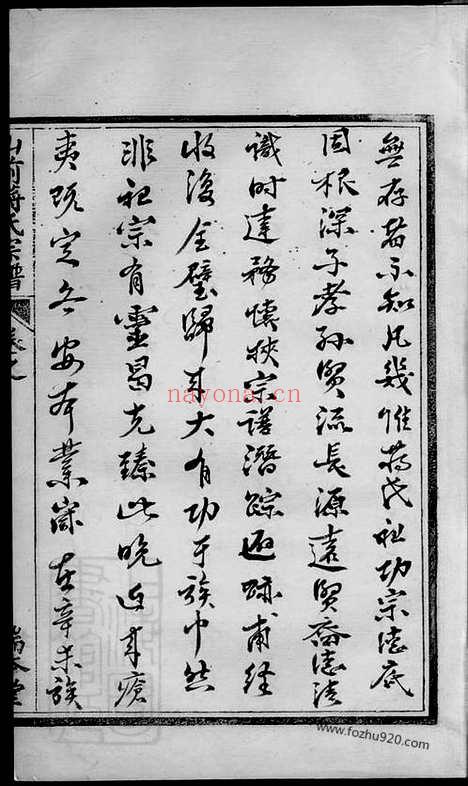 無存者不知凡幾惟蔣氏祖功宗德底
因根深子孝孫賢流長源遠賢裔德清
識時達務懷挾宗譜潛踪遯跡甫經
收復全璧歸來大有功于族中然
非祖宗有靈曷克臻此晚近來瘡
夷既定各安本業歲在辛未族
山前蔣氏宗譜
卷之
nayona.cn
www.fozhu920.com